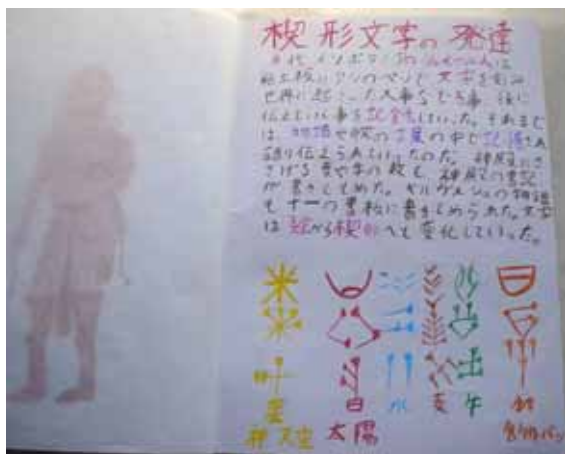 楔形文字の発達
古代メソポタミアの は
粘土板にアシのペンで文字を
世界に起こった大事なでき事 後に
伝えたい事を記録していった。それまで
は 物語や の言葉の中で記憶され
語り伝えられていったのだ。神殿にさ
さげる麦や羊の数も、神殿の書記
が書きとめた。ギルガメシュの物語
も十一の書板に書きとめられた。文字
は絵から楔形へと変化していった。
星 日 水 麦 牛
神 天空 太陽